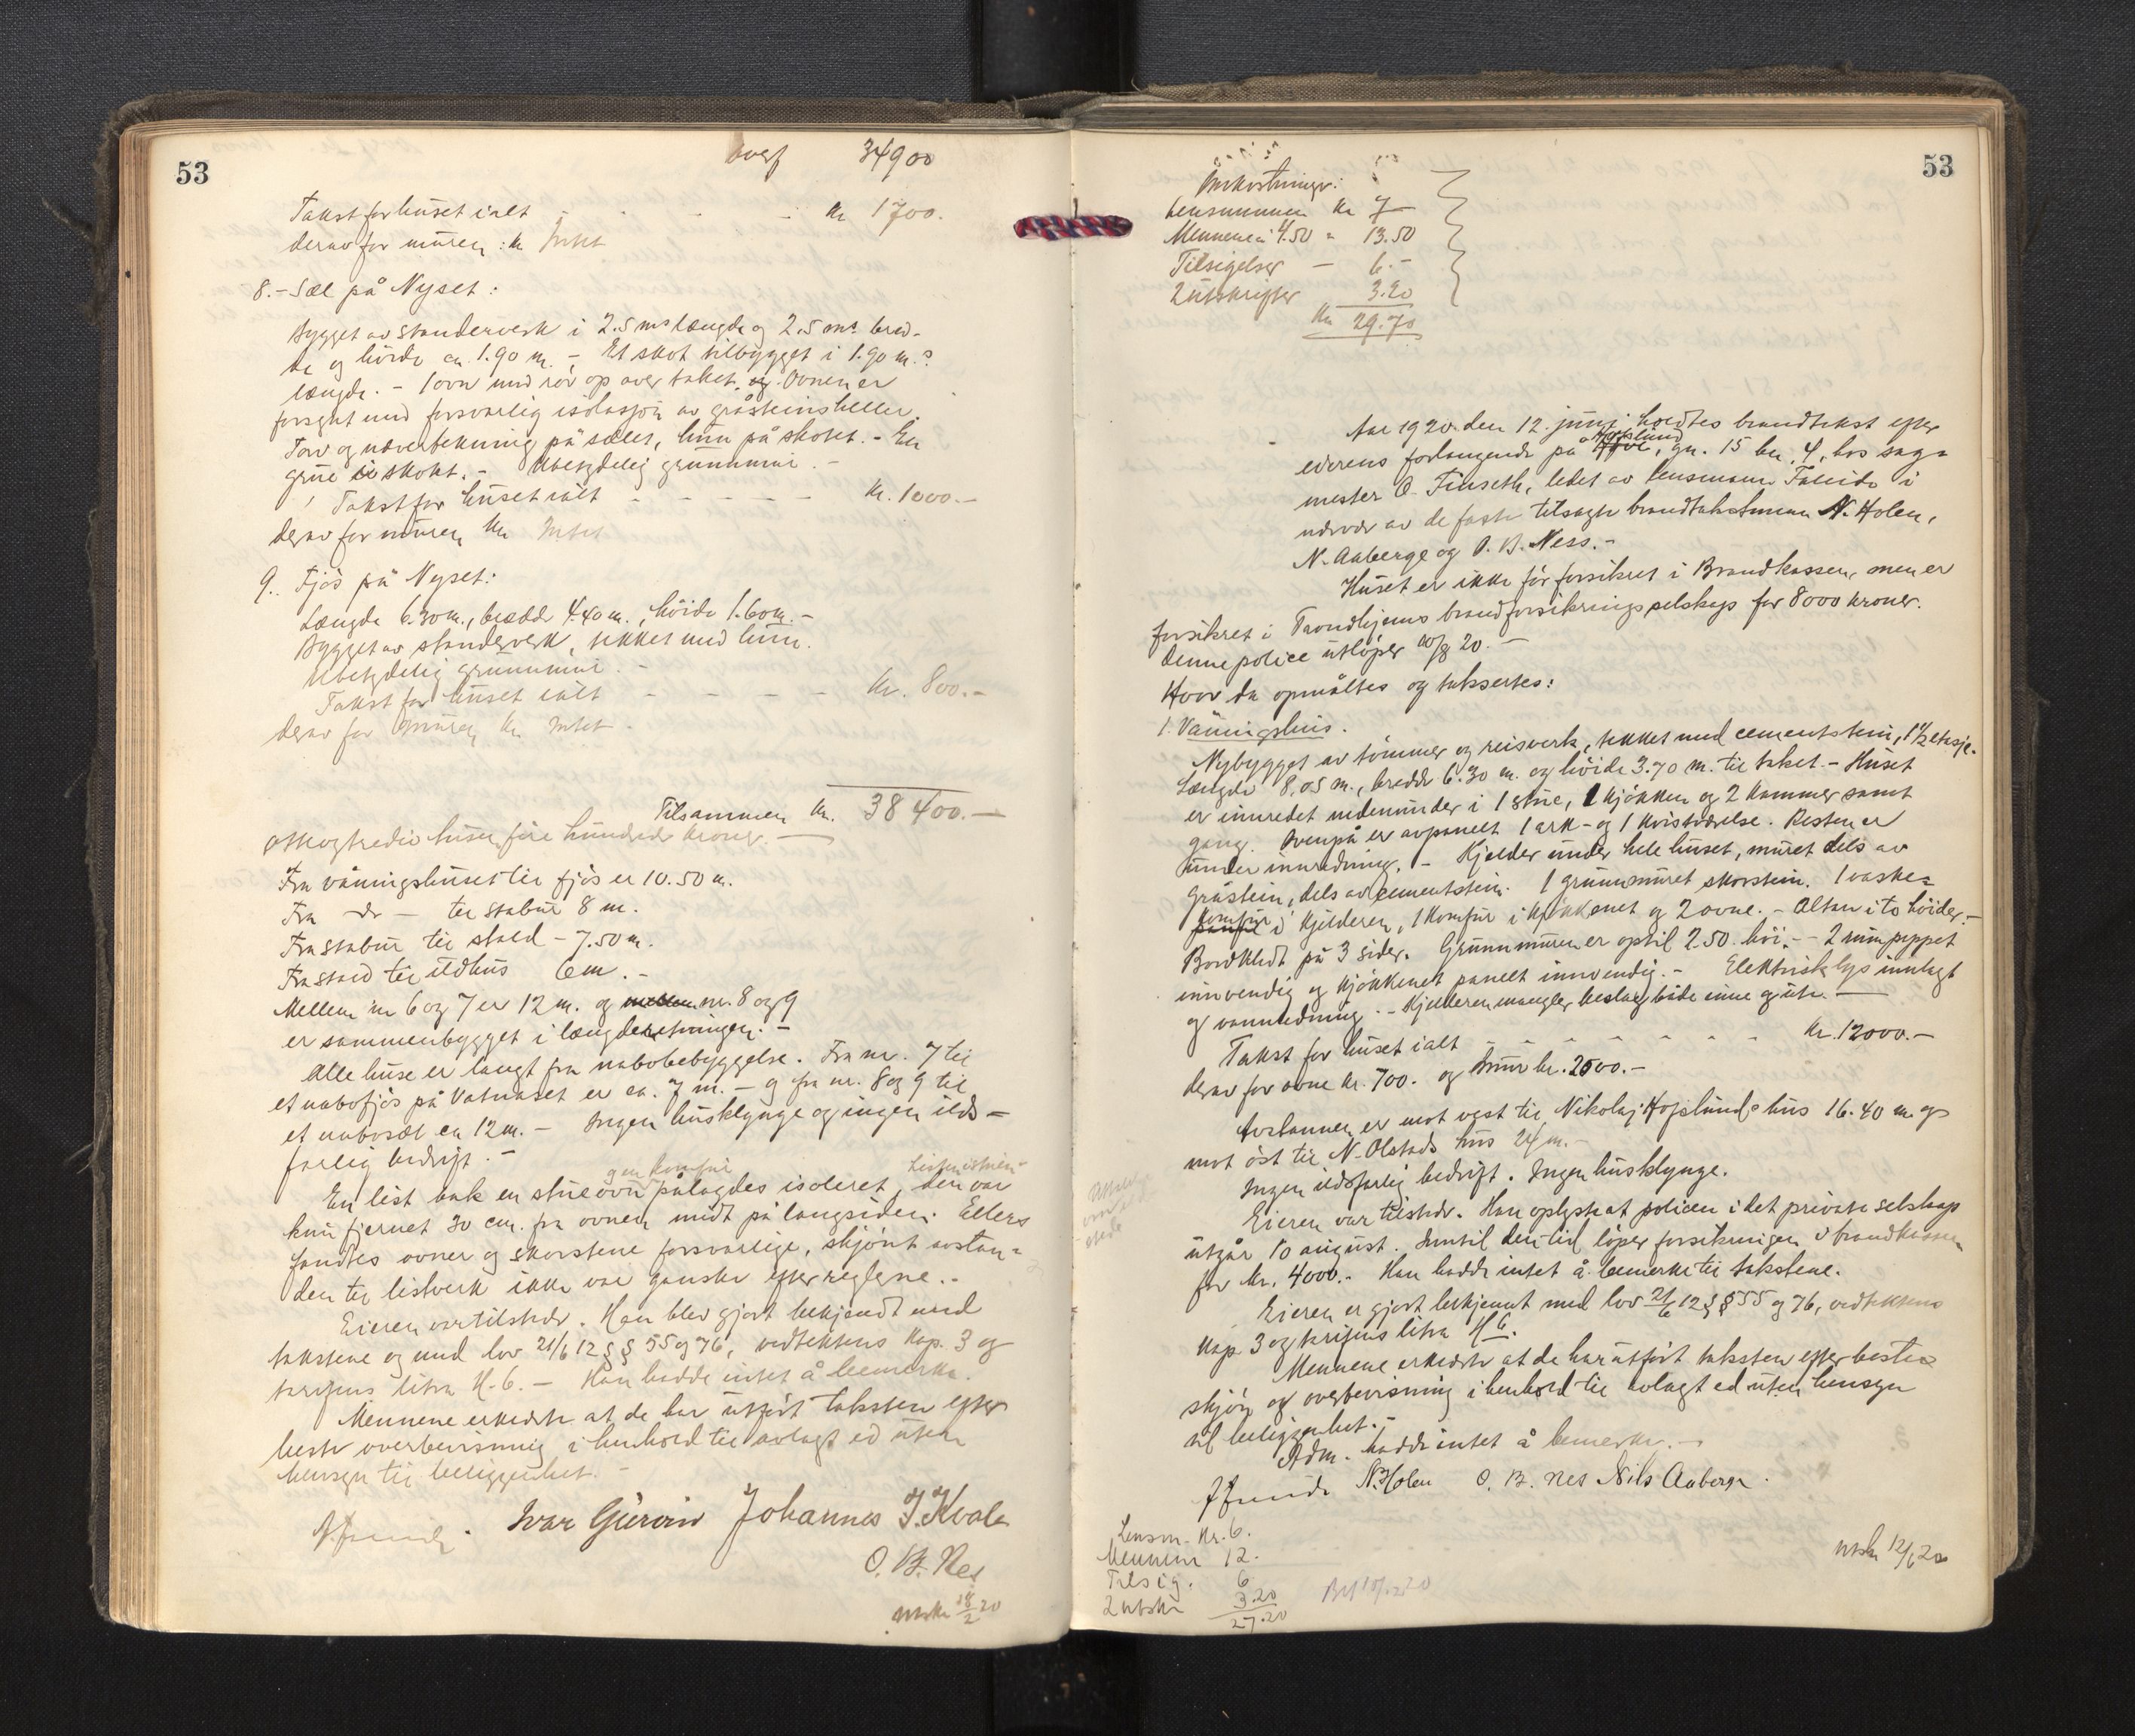 53
overf 34900
Takst for huset ialt - - - - kr 1700.
derav for muren: kr Intet
8. - Sæl på Nyset:
Bygget av standerverk i 2.5 ms længde og 2.5 ms bred-
de og höide ca. 1.90 m. - Et skot tilbygget i 1.90 m.s
længde. - 1 ovn med rör op over taket. Ovnen er
forsynt med forsvarlig isolasjon av gråsteinsheller.
Torv og nævertekning på sælet, lunn på skotet. - En
grue i skotet. - Ubetydelig grunnmur. -
Takst for huset ialt - - - - - Kr. 1000.-
derav for muren kr Intet
9. Fjös på Nyset:
Længde 6.30 m., bredde 4.40 m., höide 1.60 m. -
Bygget av standerverk, tekket med lunn.
Ubetydelig grunnmur. -
Takst for huset ialt - - - - Kr. 800.-
derav for muren kr Intet.
Tilsammen kr. 38400.-
ottiogtredve tusen fire hundrede kroner. -
Fra våningshuset til fjös er 10.50 m.
Fra - do - til stabur 8 m.
Fra stabur til stald - 7.50 m.
Fra stald til ildhus 6 m. -
Mellem nr 6 og 7 er 12 m. og mellem nr. 8 og 9
er sammenbygget i længderetningen. -
Alle huse er langt fra nabobebyggelse. Fra nr. 7 til
et nabofjös på Vatnaset er ca. 7 m. - og fra nr. 8 og 9 til
et nabosæl ca 12 m. - Ingen husklynge og ingen ilds-
farlig bedrift. -
og en komfur
En list bak en stueovn pålagdes isoleret, den var
kun fjernet 30 cm. fra ovnen midt på langsiden. Ellers
fandtes ovner og skorstene forsvarlige, skjönt avstan-
den til listverk ikke var ganske efter reglene. -
Eieren var tilstede. Han blev gjort bekjendt med
takstene og med lov 21/6 12 § § 55 og 76, vedtektens kap. 3 og
tarifens litra H. 6. - Han hadde intet å bemerke.
Mennene erklærte at de har utfört taksten efter
beste overbevisning i henhold til avlagt ed uten
hensyn til beliggenhet. -
Ivar Gjerviw Johannes J. Kvale
O. B. Nes
utskr 28/2 20
53
Omkostninger:
Lensmannen kr 7 -
Mennene à 4.50 - 13.50
Tilsigelser - 6.-
2 utskrifter 3.20
Kr 29.70
Aar 1920 den 12. juni holdtes brandtakst efter
Hopslund
eierens forlangende på Hove, gn. 15 bn. 4, hos sag-
mester O. Finseth, ledet av lensmann Faleide i
nærvær av de faste tilsagte brandtakstmenn N. Holen,
N. Aaberge og O. B. Ness. -
Huset er ikke för forsikret i Brandkassen, men er
forsikret i Trondhjems brandforsikringsselskap for 8000 kroner.
Denne police utlöper 10/8 20. -
Hvor da opmåltes og takseres:
1. Våningshus.
Nybygget av tömmer og reisverk, tekket med cementstein, 1 1/2 etasje.
Længde 8,05 m., bredde 6.30 m. og höide 3.70 m. til taket. - Huset
er innredet nedenunder i 1 stue, 1 kjökken og 2 kammer samt
gang. Ovenpå er avpanelt 1 ark- og 1 kvistværelse. Resten er
under innredning. - Kjelder under hele huset, muret dels av
gråstein, dels av cementstein. 1 grunnmuret skorstein. 1 vaske-
komfur i kjelderen, 1 komfur i kjökkenet og 2 ovne. - Altan i to höider. -
Bordklædt på 3 sider. Grunnmuren er optil 2.50 höi. - 2 rum pappet
innvendig og kjökkenet panelt innvendig. - Elektrisk lys innlagt
og vannledning. - Kjelderen mangler beslag både inne og ute. -
Takst for huset ialt - - - - - - Kr. 12000.-
derav for ovne kr. 700. og Mur kr. 2500. -
Avstannen er mot vest til Nikolaj Hopslunds hus 16.40 m og
mot öst til N. Olstads hus 24 m. -
Ingen ildsfarlig bedrift. Ingen husklynge.
Eieren var tilstede. Han oplyste at policen i det private selskap
utgår 10 august. Inntil den tid löper forsikringen i brandkassen
for kr. 4000.- Han hadde intet å bemerke til takstene.
Eieren er gjort bekjennt med lov 21/6 12 § § 55 og 76, vedtektens
kap. 3 og tarifens litra H 6.
Mennene erklærte at de har utfört taksten efter beste
skjön og overbevisning i henhold til avlagt ed uten hensyn
til beliggenhet. -
Adm. hadde intet å bemerke. -
N. Holen O. B. Nes Nils Aaberge.
Lensm. kr. 6.
Mennene 12.
Tilsig. 6
2 utskr 3.20
27.20
utskr 12/6 20